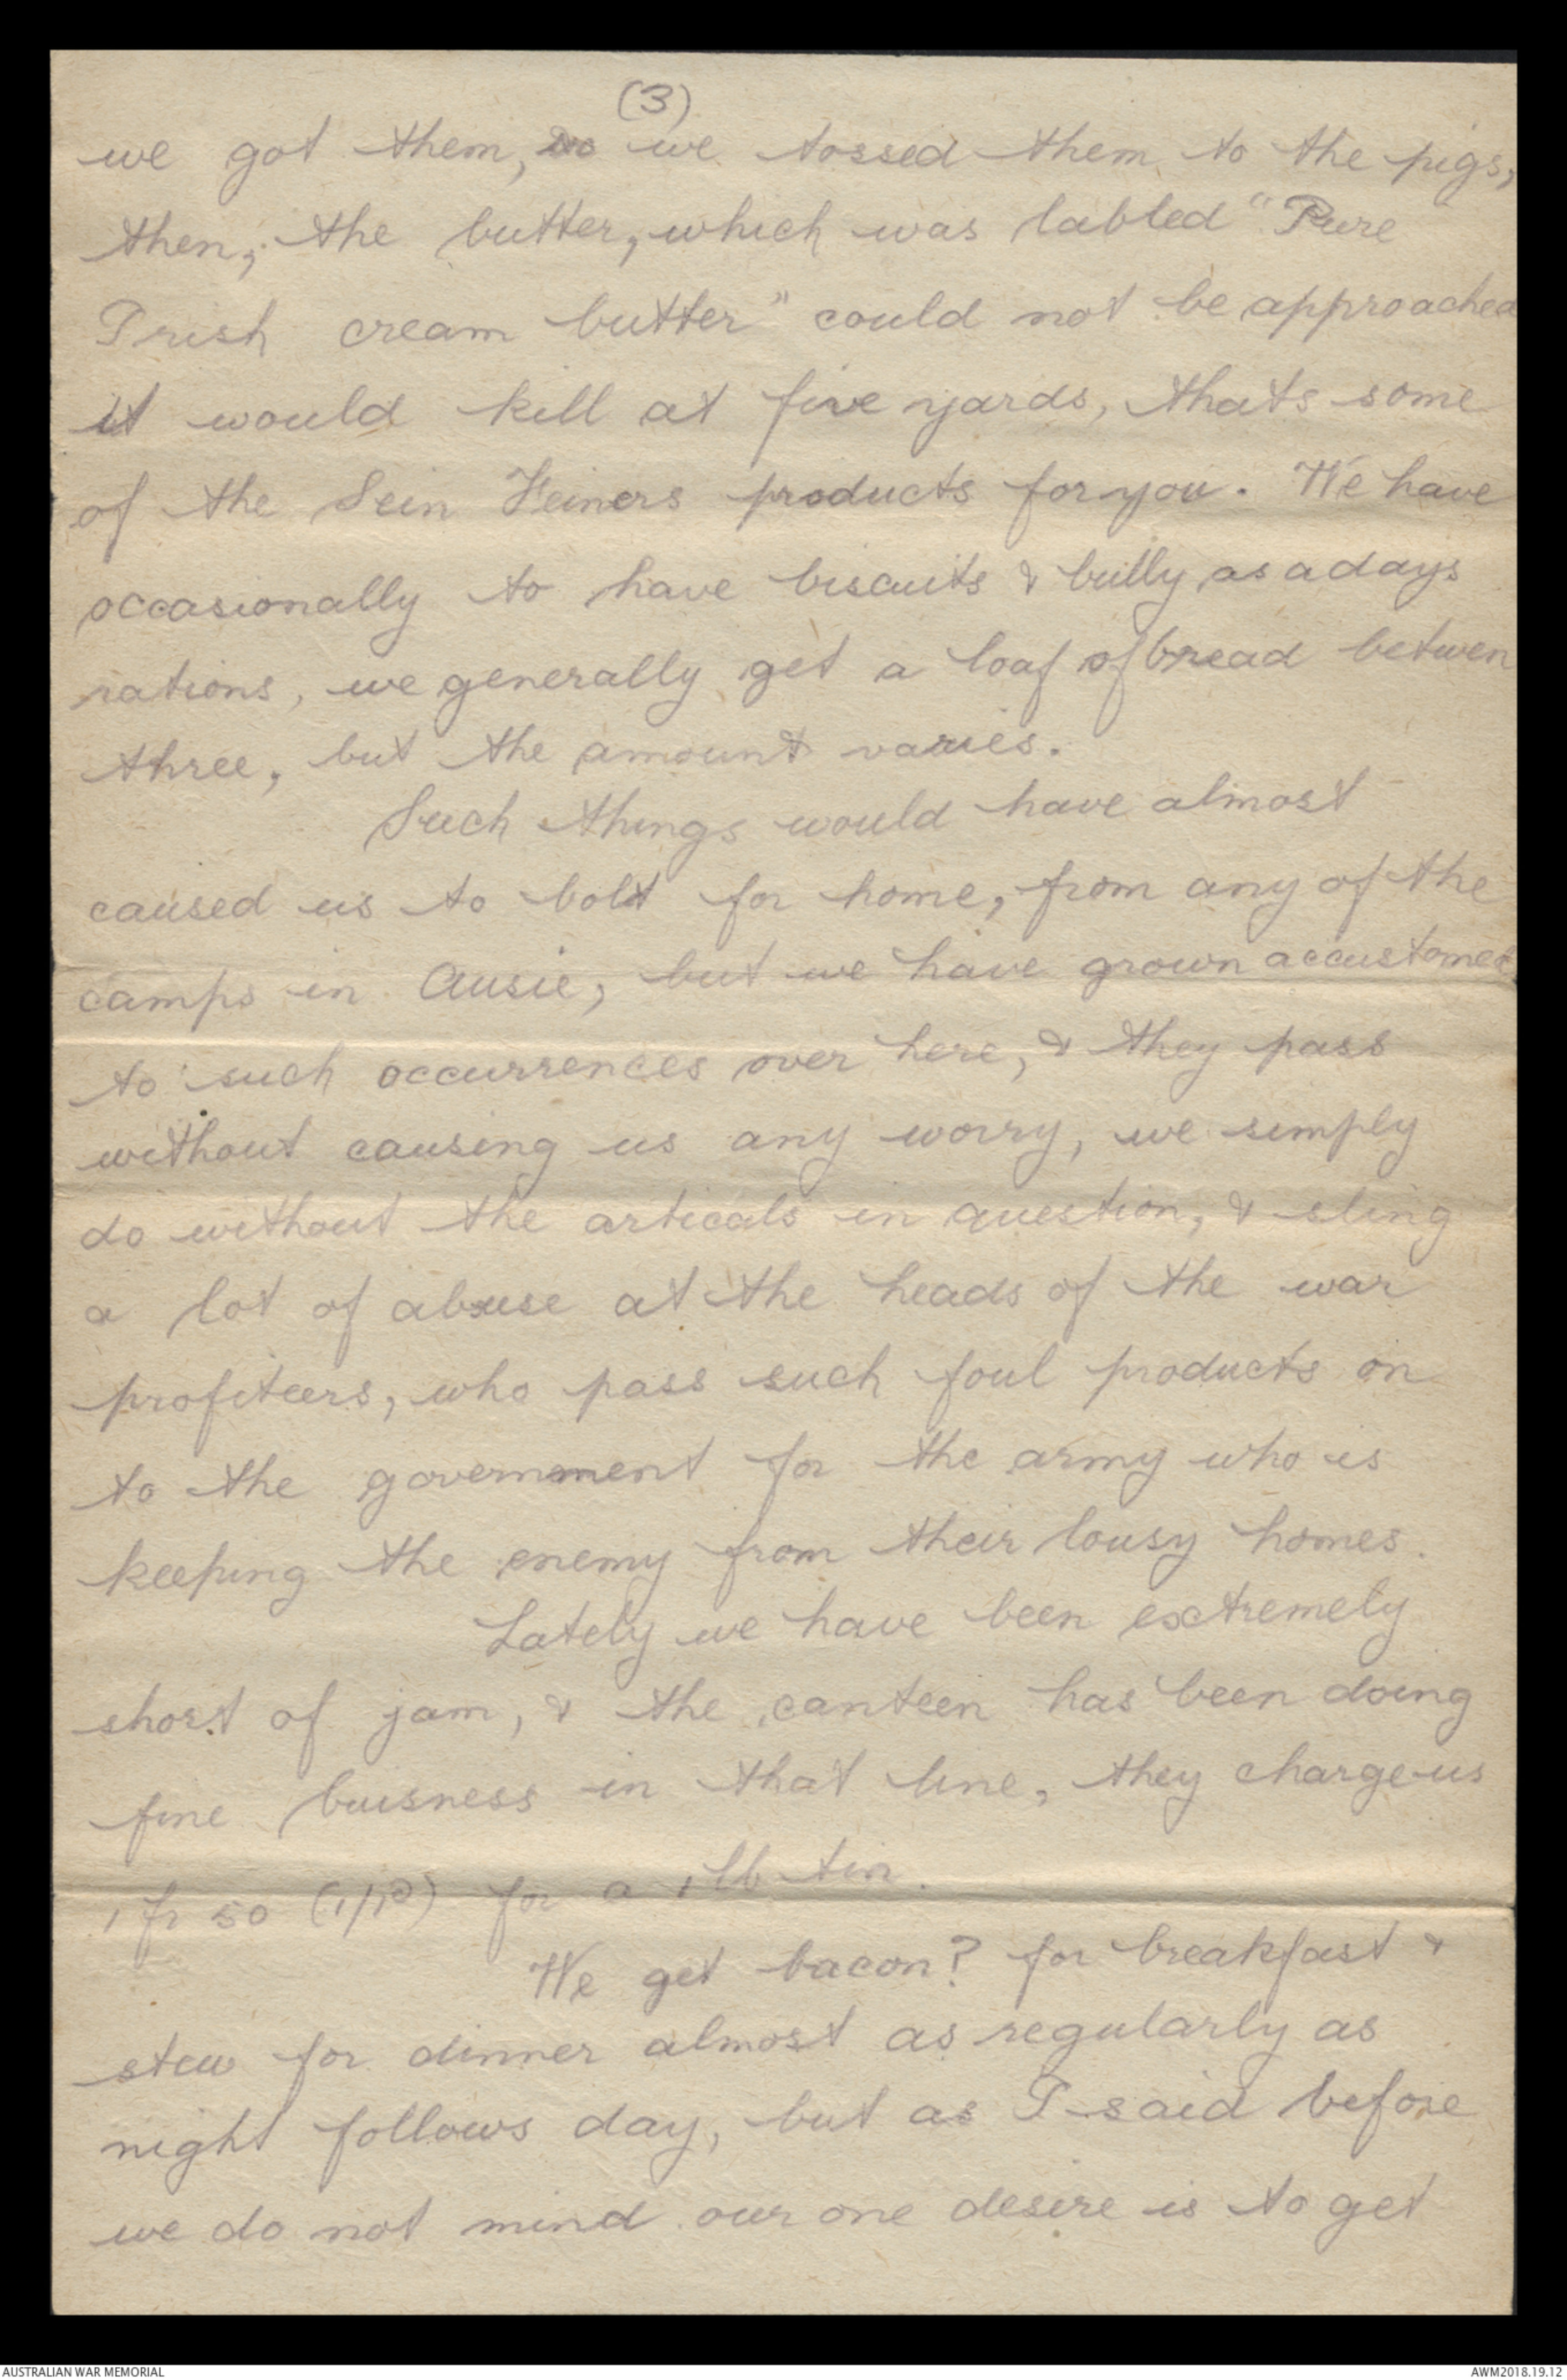 (3)
we got them, so we tossed them to the pigs,
then, the butter, which was labled "Pure
Irish cream butter" could not be approached
it would kill at five yards, thats some
of the Sein Feiners products for you. We have
occasionally to have biscuits & bully as a days
rations, we generally get a loaf of bread betwen
three, but the amount varies.
Such things would have almost
caused us to bolt for home, from any of the
camps in Ausie, but we have grown accustomed
to such occurrences over here, & they pass
without causing us any worry, we simply
do without the articals in question, & sling
a lot of abuse at the heads of the war
profiteers, who pass such foul products on
to the government for the army who is
keeping the enemy from their lousy homes.
Lately we have been extremely
short of jam, & the canteen has been doing
fine buisness in that line, they charge us
1 fr 50 for a 1 lb tin.
We get bacon? for breakfast &
stew for dinner almost as regularly as
night follows day, but as I said before
we do not mind our one desire is to get
AUSTRALIAN WAR MEMORIAL
AWM2018.19.12